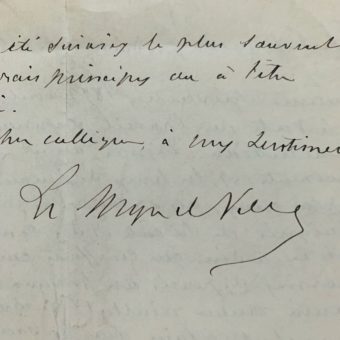 été suivies le plus souvent
vrais principes ou à l'être
cher collègue, à mes sentimen
Le Myre de Vilers